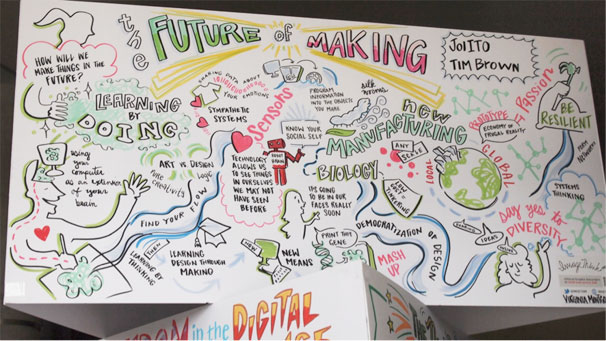 the
FUTURE of MAKING
JOI ITO
TIM BROWN
HOW WILL WE
MAKE THINGS IN THE
FUTURE?
LEARNING
BY
DOING
USING
YOUR
COMPUTER
as an extender of
your
brain
SHARING DATA ABOUT
YOUR EMOTIONS
SYMPATHETIC
SYSTEMS
Sensors
PROGRAM
INFORMATION
INTO THE OBJECTS
YOU MAKE
silk
worms
new
MANUFACTURING
KNOW YOUR
SOCIAL SELF
ART vs DESIGN
pure
creativity
FIND YOUR FLOW
TECHNOLOGY
ALLOWS US
TO SEE THINGS
IN OURSELVES
WE MAY NOT
HAVE SEEN
BEFORE
BIOLOGY
IT'S GOING
TO BE IN OUR
FACES REALLY
SOON
ANY
SCALE
LOCAL
GLOBAL
ECONOMY OF
FRUGAL REALITY
PASSION
BE
RESILIENT
SYSTEMS
THINKING
say yes to
DIVERSITY
IDEAS
DEMOCRATIZATION OF
DESIGN
MASH
UP
PRINT THIS
GENE
NEW
MEANS
THEN
LEARNING BY
THINKING
LEARNING
DESIGN THROUGH
MAKING
in the DIGITAL